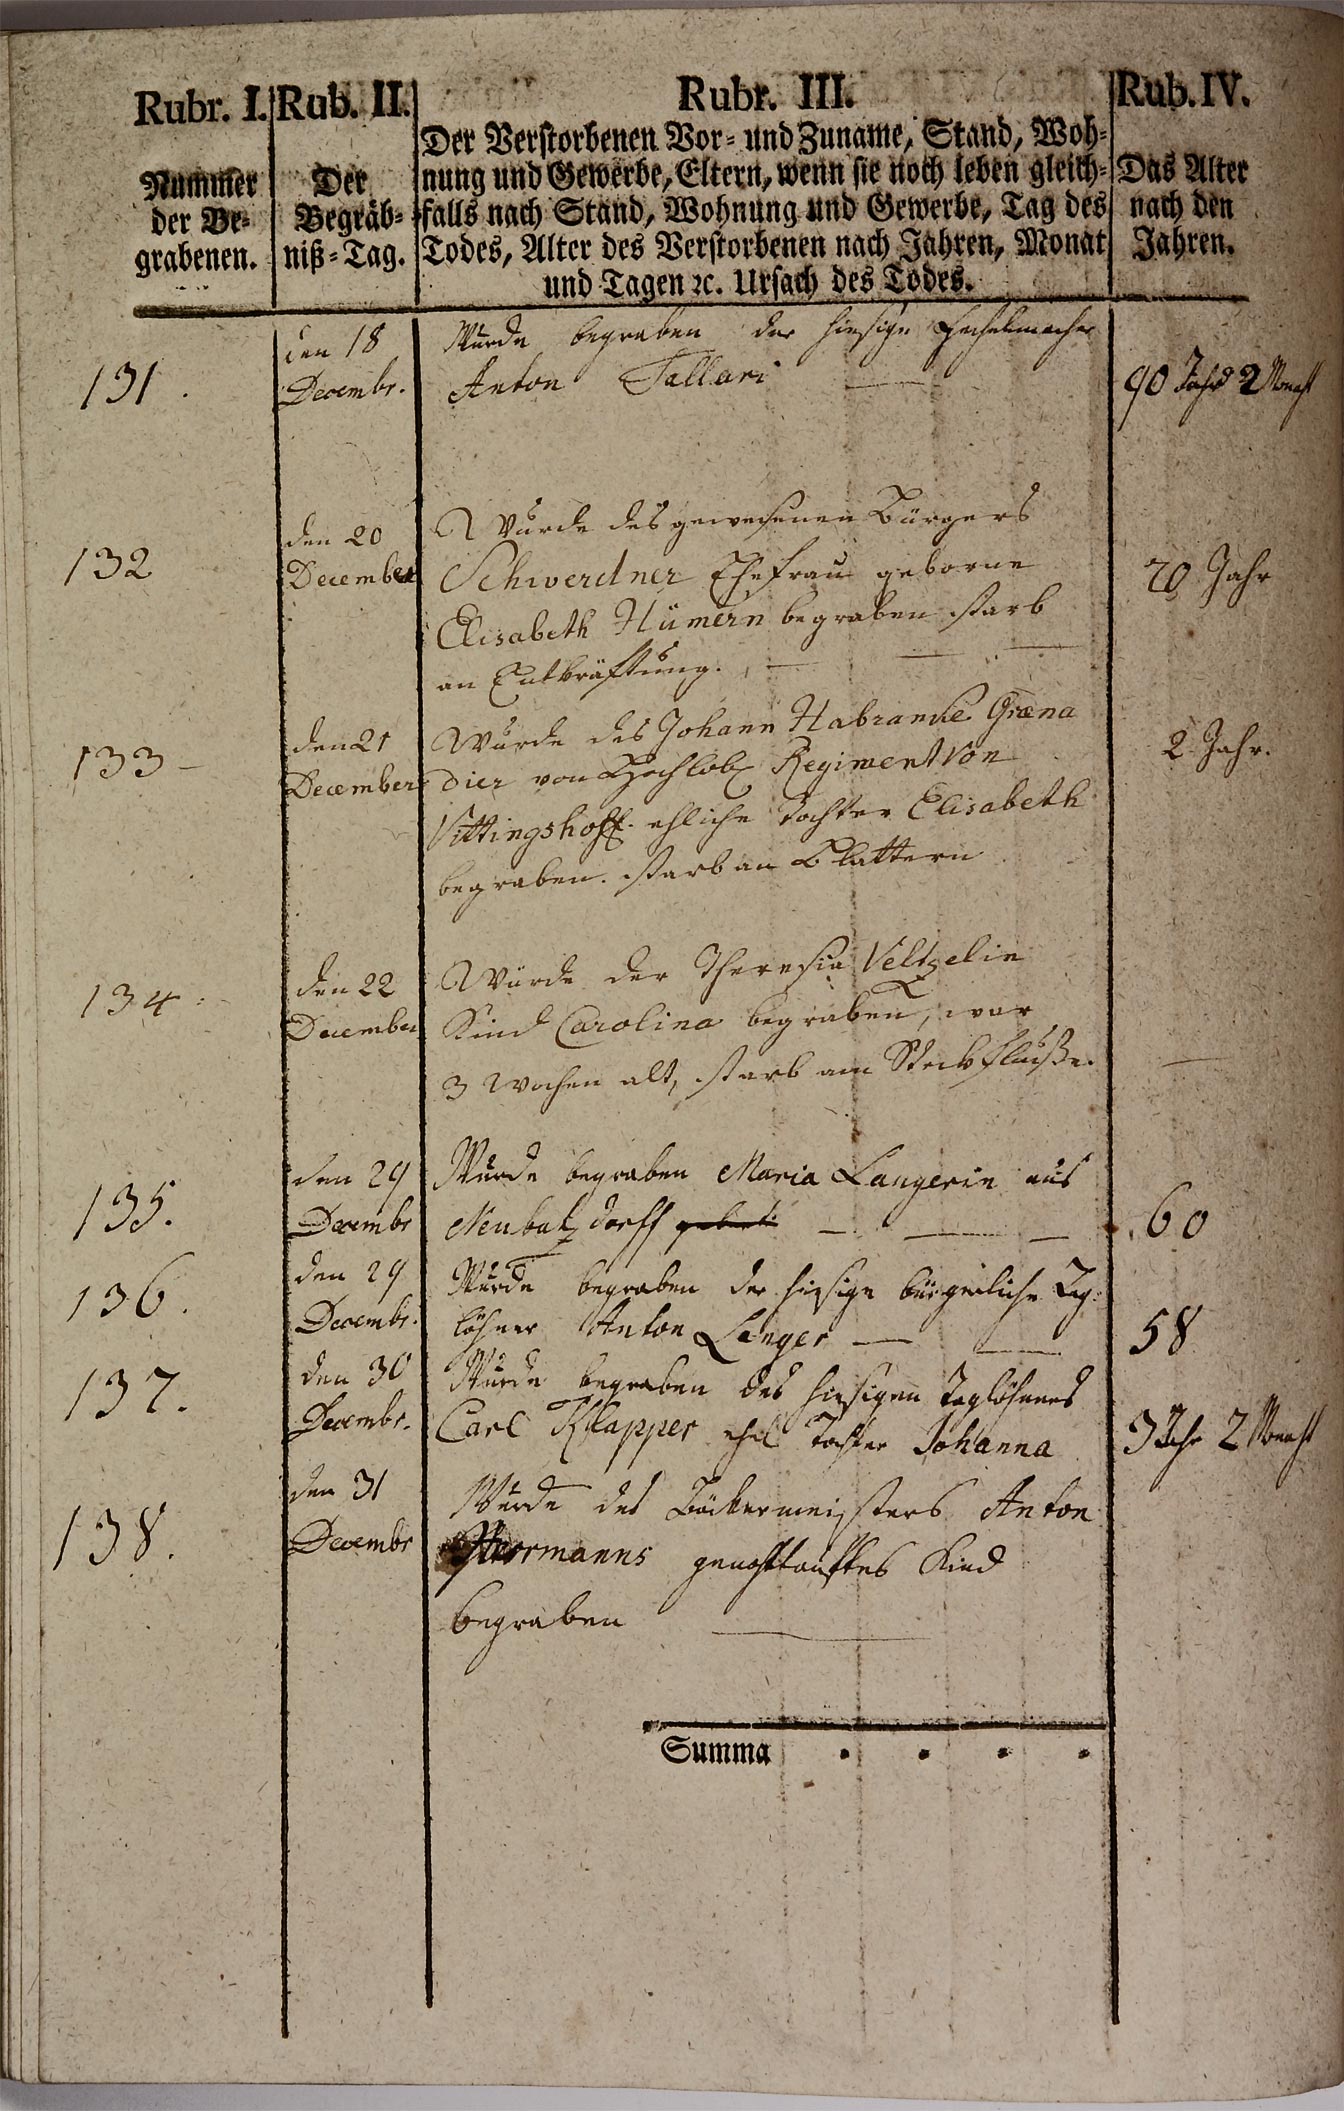 Rubr. I.
Nummer
der Be-
grabenen.
Rub. II.
Der
Begräb-
niß-Tag.
Rubr. III.
Der Verstorbenen Vor- und Zuname, Stand, Woh-
nung und Gewerbe, Eltern, wenn sie noch leben gleich-
falls nach Stand, Wohnung und Gewerbe, Tag des
Todes, Alter des Verstorbenen nach Jahren, Monat
und Tagen ꝛc. Ursach des Todes.
Rub. IV.
Das Alter
nach den
Jahren.
131.
den 18
Decembr.
Wurde begraben der hiesige Hechelmacher
Anton Tallari
90 Jahr 2 Monath
132
den 20
December
Wurde des gewesenen Bürgers
Schwerdtner Ehefrau geborne
Elisabeth Hümern begraben starb
an Entkräftung.
70 Jahr
133
den 21
December
Wurde des Johann Habranke Grena
dier von Hochlobl Regiment von
Vittinghoff. ehliche Tochter Elisabeth
begraben. starb an Blattern
2 Jahr.
134
den 22
December
Wurde der Theresia Veltzelin
Kind Carolina begraben, war
3 Wochen alt, starb am Steckfluße.
135.
den 29
Decembr
Wurde begraben Maria Langerin aus
Neubatzdorff
60
136.
den 29
Decembr.
Wurde begraben der hiesige bürgerliche Tag-
löhner Anton Langer
58
137.
den 30
Decembr.
Wurde begraben des hiesigen Taglöhners
Carl Klapper ehel Tochter Johanna
3 Jahr 2 Monath
138.
den 31
Decembr
Wurde des Bäckermeisters Anton
Herrmanns genothtauftes Kind
begraben
Summa . . . .